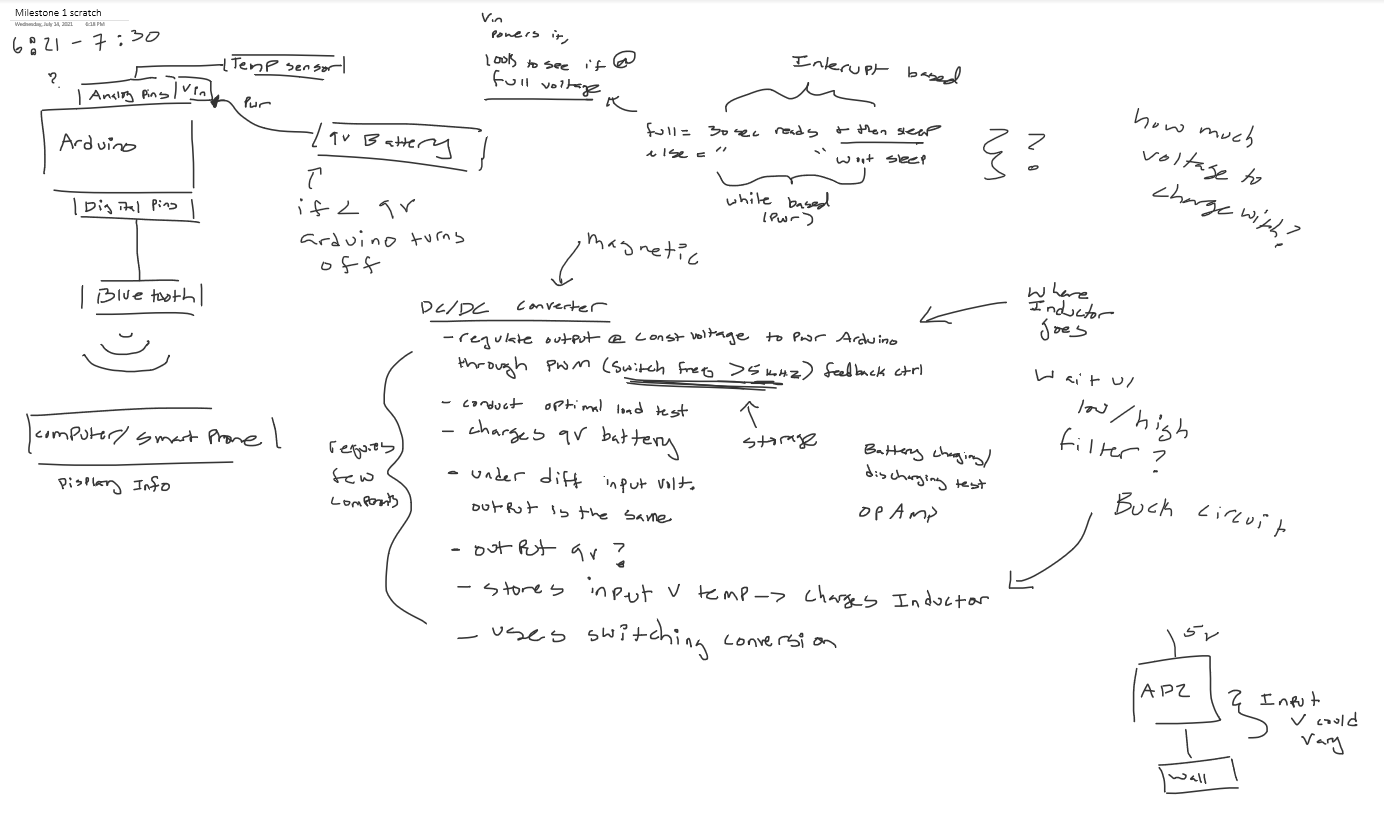 Milestone 1 scratch
Wednesday, July 14, 2021 6:18 PM
6:21 - 7:30
?
Temp sensor
Analog Pins
Vin
Pwr
Arduino
9v Battery
Digital Pins
if < 9v
arduino turns
off
Bluetooth
computer/ smart Phone
Display Info
Vin
Powers it,
looks to see if @
full voltage
Interupt based
full = 30 sec reads + then sleep
else = " " wont sleep
while based
(Pwr)
?
how much
voltage to
charge with?
magnetic
DC/DC converter
- regulate output @ const voltage to Pwr Arduino
through PWM (switch freq >5 kHz) feedback ctrl
- conduct optimal load test
- charges 9v battery
- under diff input volt.
output is the same
- output 9v ?
- stores input V temp -> charges Inductor
- uses switching conversion
requires
few
storage
Where
Inductor
goes
Wait w/
low/high
filter ?
Battery charging/
discharging test
OP Amp
Buck circuit
5v
Input
V could
vary
Wall